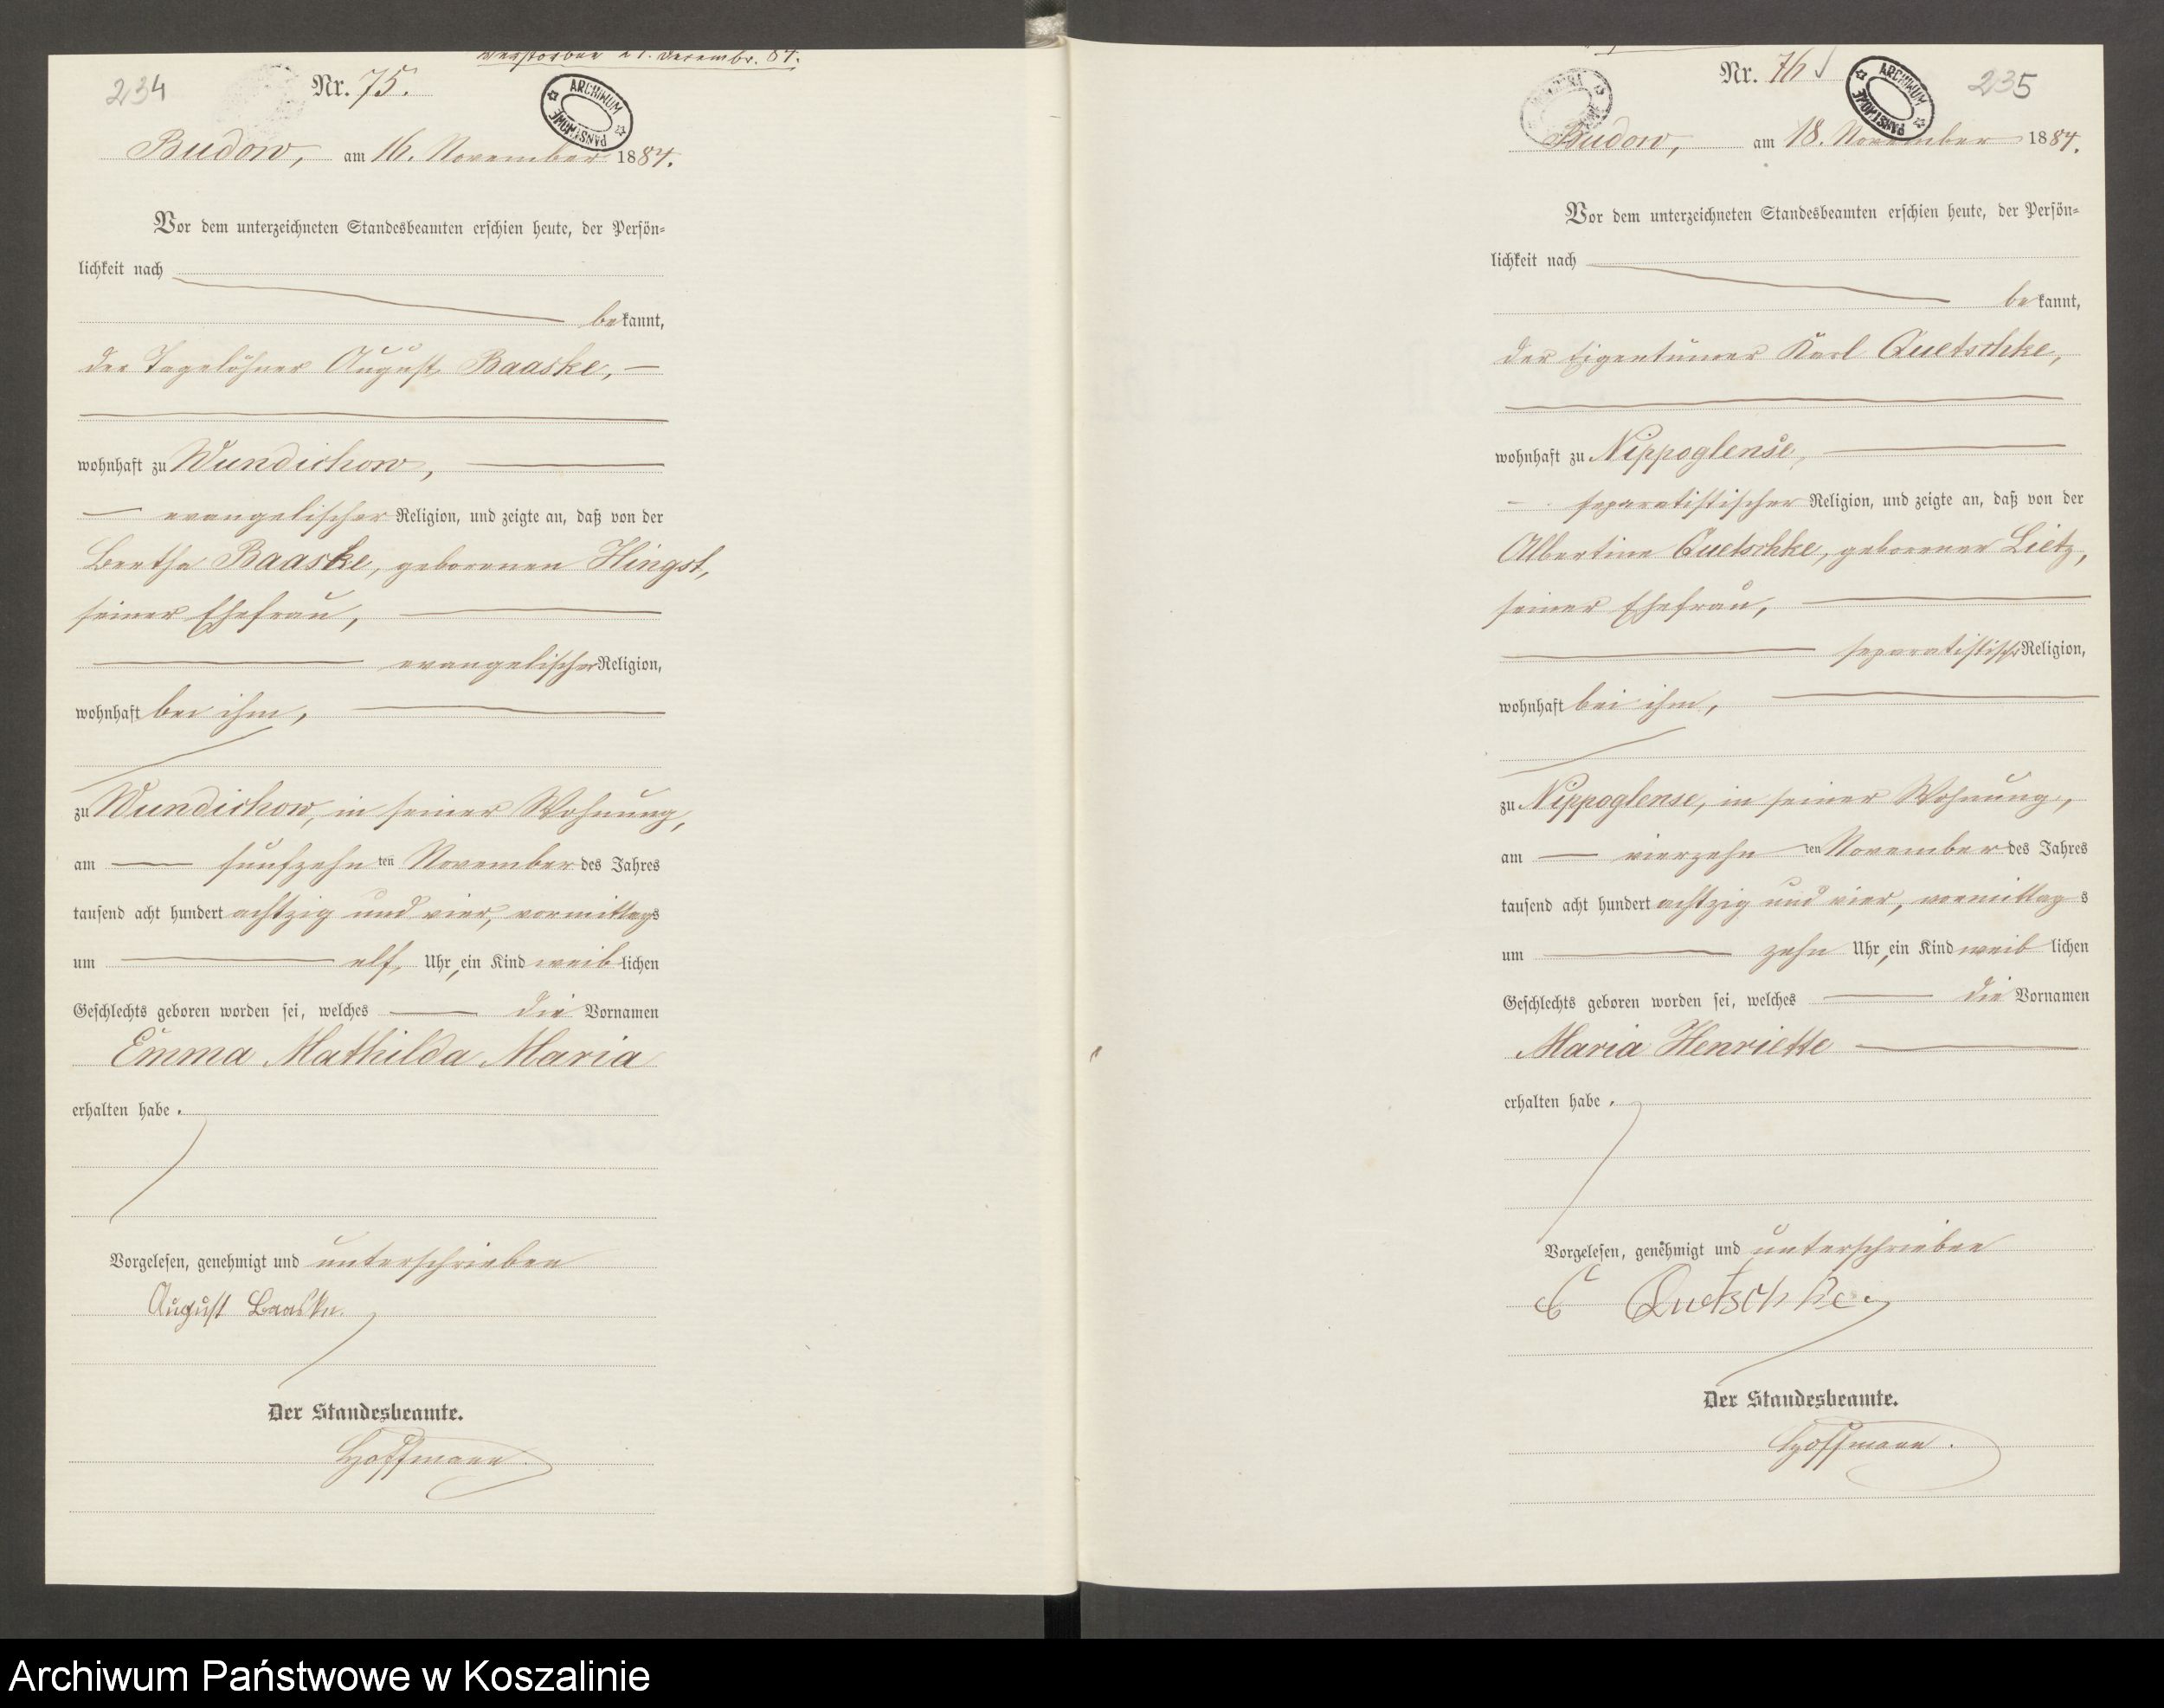 verstorben 21. Decembr. 84.
234
Nr. 75.
ARCHIWUM PAŃSTWOWE
Budow, am 16. November 1884.
Vor dem unterzeichneten Standesbeamten erschien heute, der Persön-
lichkeit nach
bekannt,
der Tagelöhner August Baaske,
wohnhaft zu Wundichow,
evangelischer Religion, und zeigte an, daß von der
Bertha Baaske, geborenen Hingst,
seiner Ehefrau,
evangelischer Religion,
wohnhaft bei ihm,
zu Wundichow, in seiner Wohnung,
am fünfzehn ten November des Jahres
tausend acht hundert achtzig und vier, vormittags
um elf Uhr, ein Kind weiblichen
Geschlechts geboren worden sei, welches die Vornamen
Emma Mathilda Maria
erhalten habe.
Vorgelesen, genehmigt und unterschrieben
August Baaske.
Der Standesbeamte.
Hoffmann.
Nr. 76
ARCHIWUM PAŃSTWOWE
235
Budow, am 18. November 1884.
Vor dem unterzeichneten Standesbeamten erschien heute, der Persön-
lichkeit nach
bekannt,
der Eigentümer Karl Quetschke,
wohnhaft zu Nippoglense,
separatistischer Religion, und zeigte an, daß von der
Albertine Quetschke, geborener Lietz,
seiner Ehefrau,
separatistisch Religion,
wohnhaft bei ihm,
zu Nippoglense, in seiner Wohnung,
am vierzehn ten November des Jahres
tausend acht hundert achtzig und vier, vormittags
um zehn Uhr, ein Kind weiblichen
Geschlechts geboren worden sei, welches die Vornamen
Maria Henriette
erhalten habe.
Vorgelesen, genehmigt und unterschrieben
C Quetschke.
Der Standesbeamte.
Hoffmann.
Archiwum Państwowe w Koszalinie